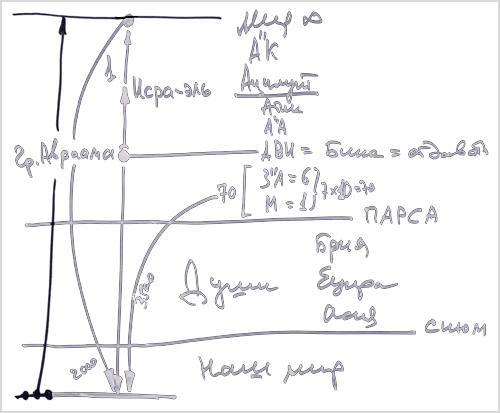 Мир ∞
А"К
1
Исра-эль
Ацилут
Атик
А"А
Гр. Авраама
АВИ = Бина = отдавать
70 [ З"А = 6
М = 1 } 7x10=70
ПАРСА
Брия
Души
Ецира
Асия
СИЮМ
2000
Наш мир